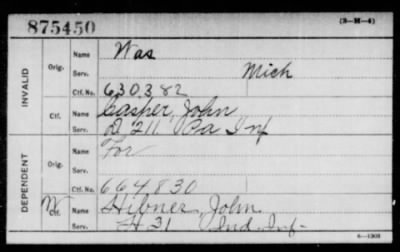 875450
(3-H-4)
INVALID
Orig.
Name Was
Serv. Mich
Ctf. No. 630382
Ctf.
Name Casper, John
Serv. D 211 Pa Inf
DEPENDENT
Orig.
Name For
Serv.
Ctf. No. 664830
W Ctf.
Name Hibner, John
Serv. H 31 Ind. Inf-